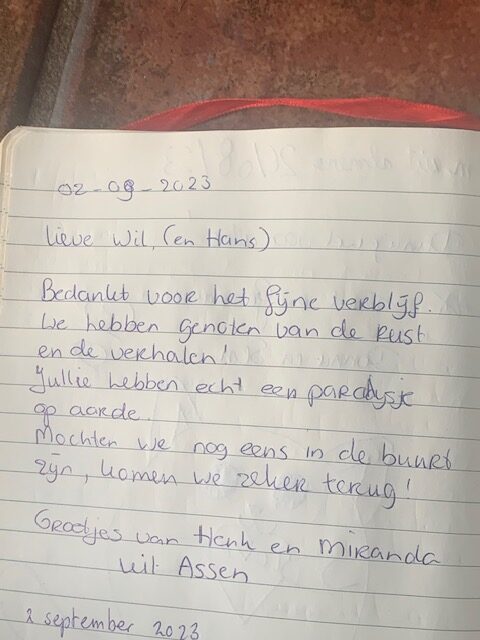 02-09-2023
Lieve Wil, (en Hans)
Bedankt voor het fijne verblijf.
We hebben genoten van de rust
en de verhalen!
Jullie hebben echt een paradijsje
op aarde.
Mochten we nog eens in de buurt
zijn, komen we zeker terug!
Groetjes van Henk en Miranda
uit Assen
2 september 2023